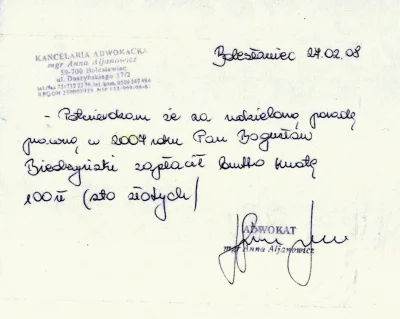 KANCELARIA ADWOKACKA
mgr Anna Aljanowicz
59-700 Bolesławiec
ul. Daszyńskiego 17/2
Bolesławiec 27.02.08
- Potwierdzam że za udzieloną poradę
prawną w 2007 roku Pan Bogusław
Biedrzyński zapłacił brutto kwotę
100 zł (sto złotych)
ADWOKAT
mgr Anna Aljanowicz